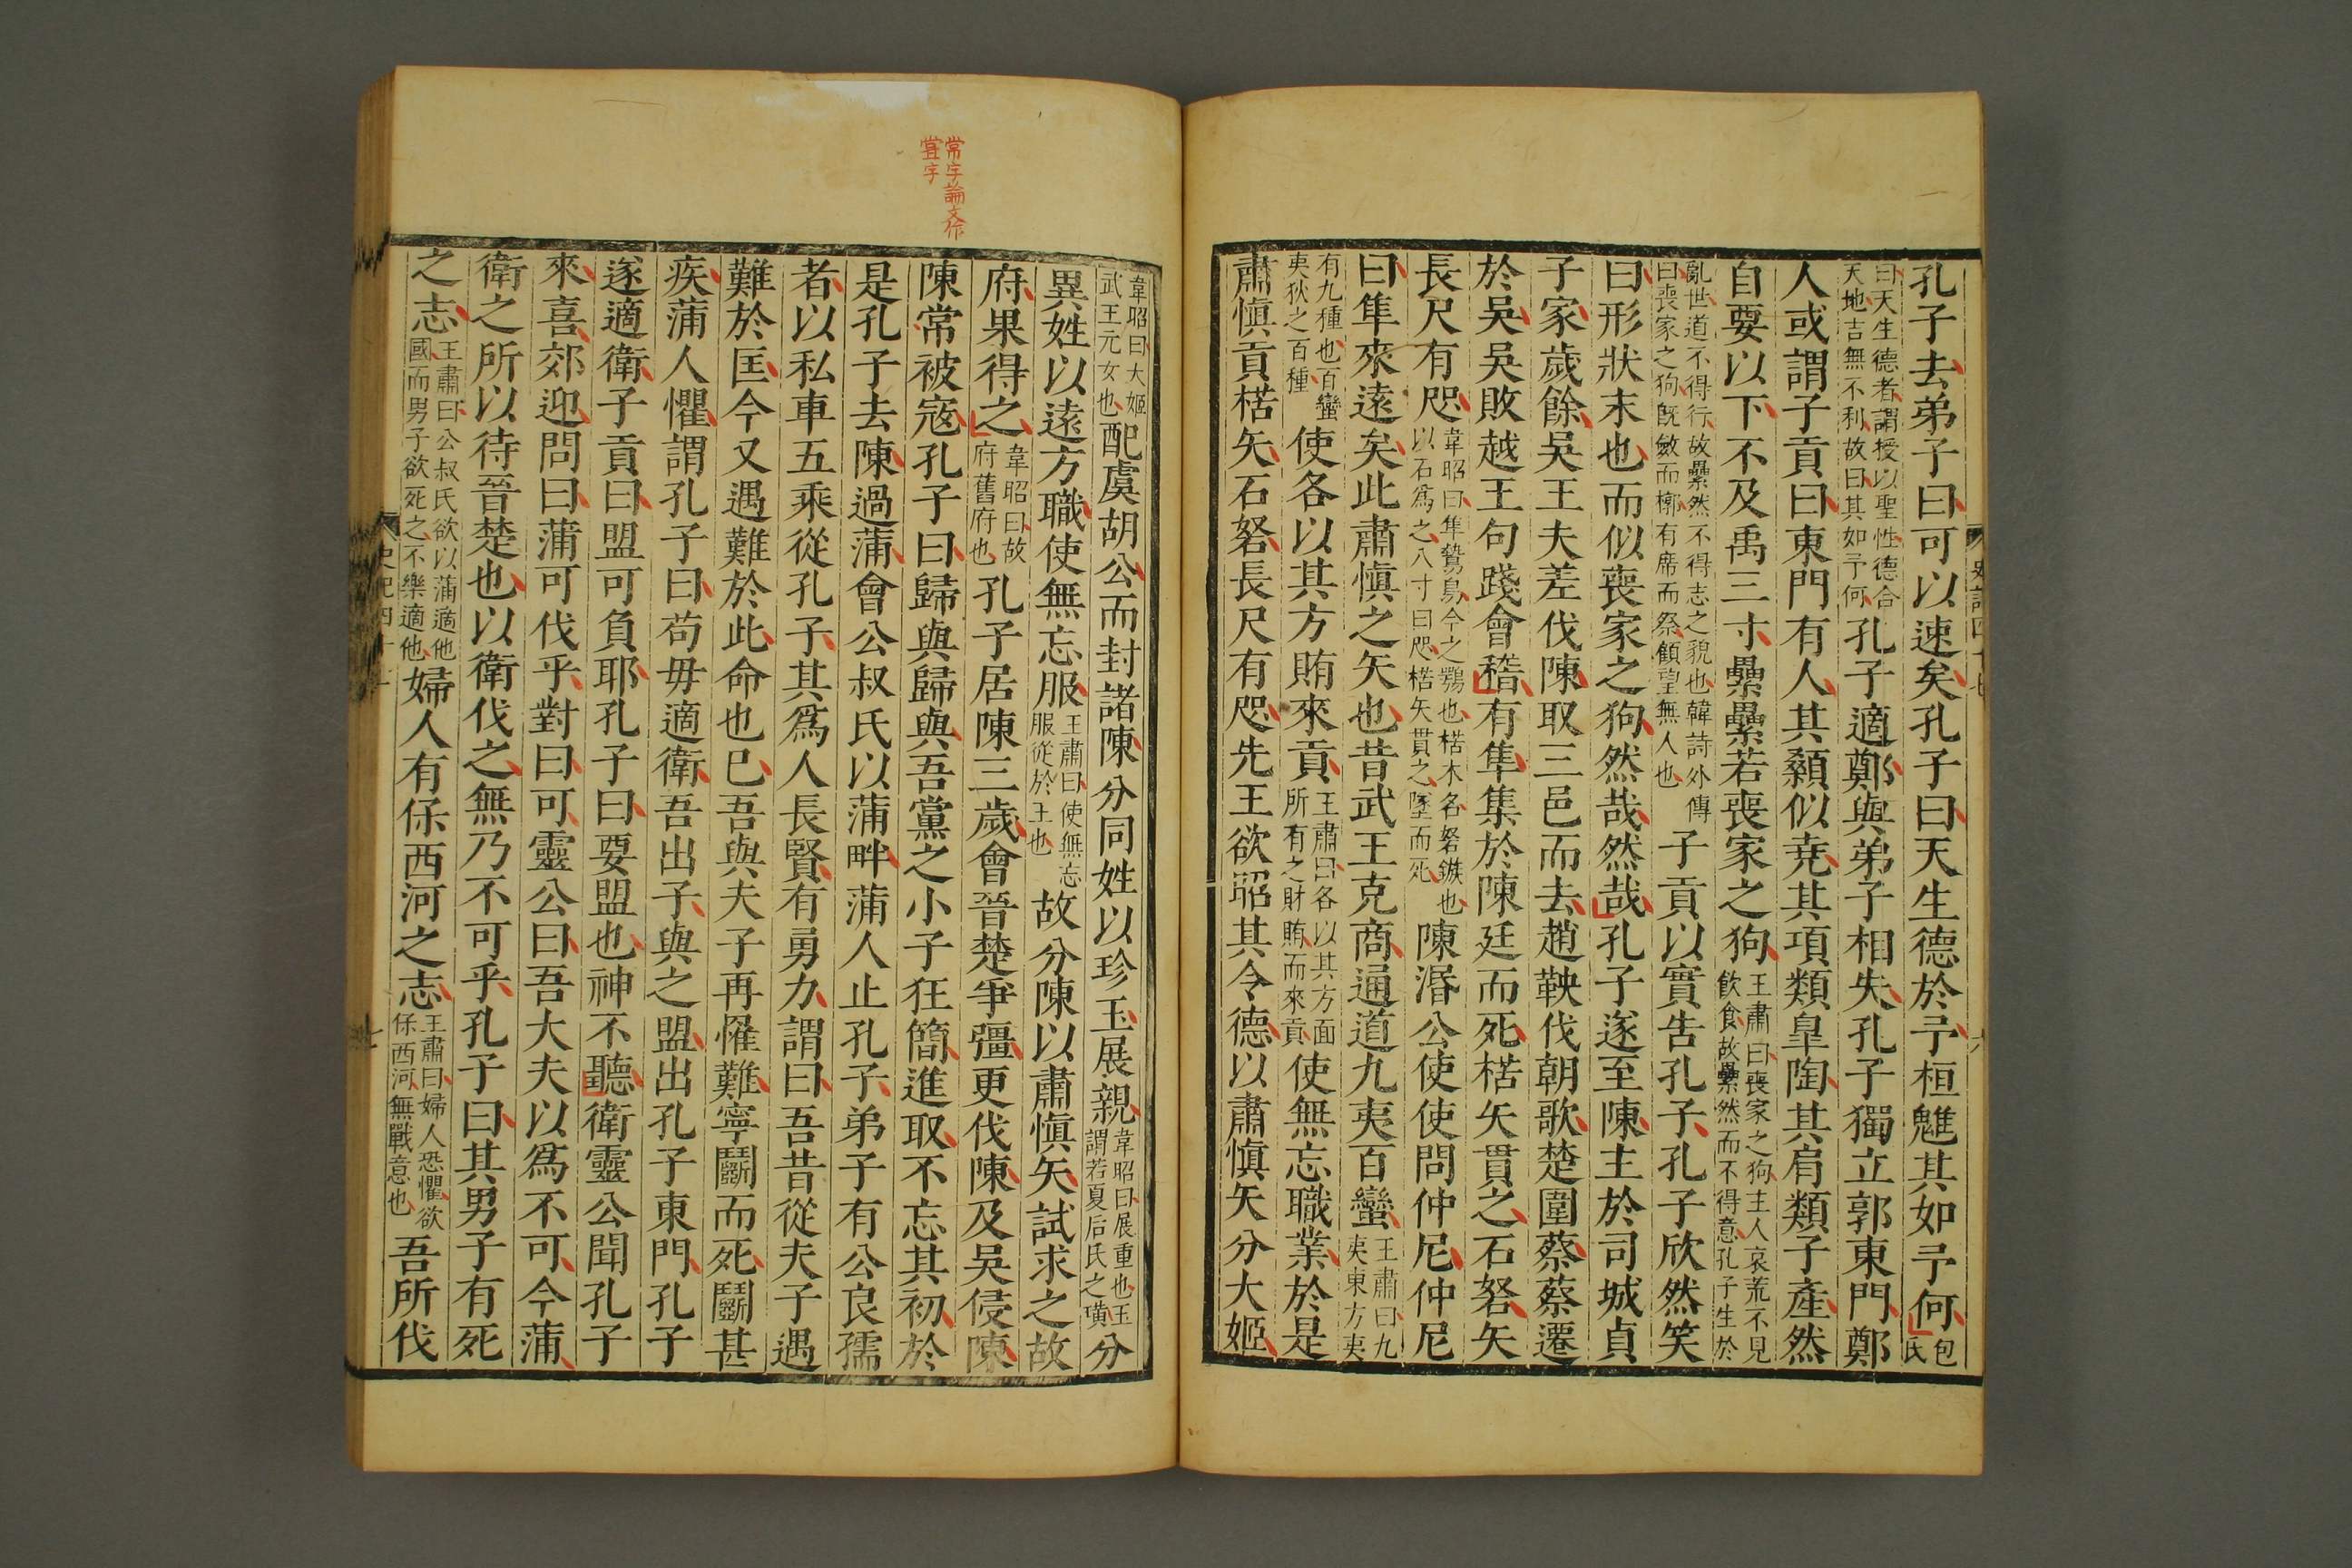 孔子去弟子曰可以速矣孔子曰天生德於予桓魋其如予何包氏
曰天生德者謂授以聖性德合天地吉無不利故曰其如予何孔子適鄭與弟子相失孔子獨立郭東門鄭
人或謂子貢曰東門有人其顙似堯其項類臯陶其肩類子產然
自要以下不及禹三寸纍纍若喪家之狗王肅曰喪家之狗主人哀荒不見飲食故纍然而不得意孔子生於
亂世道不得行故纍然不得志之貌也韓詩外傳曰喪家之狗旣斂而槨有席而祭顧望無人也子貢以實告孔子孔子欣然笑
曰形狀末也而似喪家之狗然哉然哉孔子遂至陳主於司城貞
子家歲餘吳王夫差伐陳取三邑而去趙鞅伐朝歌楚圍蔡蔡遷
於吳吳敗越王句踐會稽有隼集於陳廷而死楛矢貫之石砮矢
長尺有咫韋昭曰隼鷙鳥今之鶚也楛木名砮鏃也以石爲之八寸曰咫楛矢貫之墜而死陳湣公使使問仲尼仲尼
曰隼來遠矣此肅慎之矢也昔武王克商通道九夷百蠻王肅曰九夷東方夷
有九種也百蠻夷狄之百種使各以其方賄來貢王肅曰各以其方面所有之財賄而來貢使無忘職業於是
肅慎貢楛矢石砮長尺有咫先王欲昭其令德以肅慎矢分大姬
常字論文作
當字
韋昭曰大姬武王元女也配虞胡公而封諸陳分同姓以珍玉展親韋昭曰展重也玉謂若夏后氏之璜分
異姓以遠方職使無忘服王肅曰使無忘服從於王也故分陳以肅慎矢試求之故
府果得之韋昭曰故府舊府也孔子居陳三歲會晉楚爭彊更伐陳及吳侵陳
陳常被寇孔子曰歸與歸與吾黨之小子狂簡進取不忘其初於
是孔子去陳過蒲會公叔氏以蒲畔蒲人止孔子弟子有公良孺
者以私車五乘從孔子其爲人長賢有勇力謂曰吾昔從夫子遇
難於匡今又遇難於此命也已吾與夫子再罹難寧鬭而死鬭甚
疾蒲人懼謂孔子曰苟毋適衛吾出子與之盟出孔子東門孔子
遂適衛子貢曰盟可負耶孔子曰要盟也神不聽衛靈公聞孔子
來喜郊迎問曰蒲可伐乎對曰可靈公曰吾大夫以爲不可今蒲
衛之所以待晉楚也以衛伐之無乃不可乎孔子曰其男子有死
之志王肅曰公叔氏欲以蒲適他國而男子欲死之不樂適他婦人有保西河之志王肅曰婦人恐懼欲保西河無戰意也吾所伐